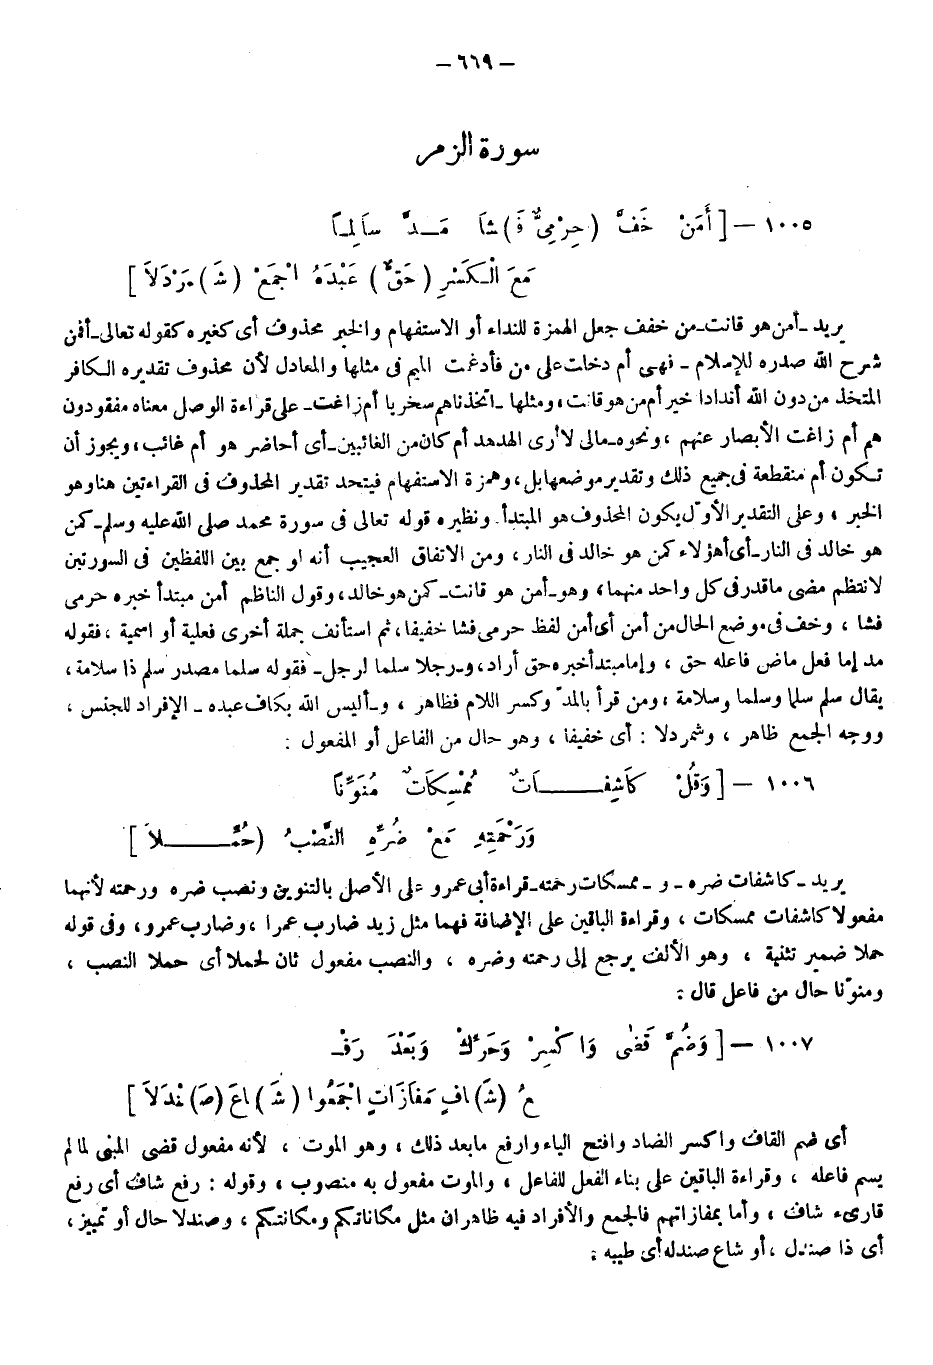 — ٦٦٩ —
سورة الزمر
١٠٠٥ — [ أَمَنْ خَفَّ (حِرْمِىٌّ فَ)شَا مَـدَّ سَالِمًا
مَعَ الْكَسْرِ (حَقٌّ) عَبْدَهُ اجْمَعْ (شَ)مَرْدَلَا ]
يريد ـ أمن هو قانت ـ من خفف جعل الهمزة للنداء أو الاستفهام والخبر محذوف أى كغيره كقوله تعالى ـ أفمن
شرح الله صدره للإسلام ـ فهى أم دخلت على من فأدغمت الميم فى مثلها والمعادل لأن محذوف تقديره الكافر
المتخذ من دون الله أندادا خير أم من هو قانت، ومثلها ـ اتخذناهم سخريا أم زاغت ـ على قراءة الوصل معناه مفقودون
هم أم زاغت الأبصار عنهم ، ونحوه ـ مالى لا أرى الهدهد أم كان من الغائبين ـ أى أحاضر هو أم غائب، ويجوز أن
تكون أم منقطعة فى جميع ذلك وتقدير موضعها بل، وهمزة الاستفهام فيتحد تقدير المحذوف فى القراءتين هنا وهو
الخبر ، وعلى التقدير الأوّل يكون المحذوف هو المبتدأ. ونظيره قوله تعالى فى سورة محمد صلى الله عليه وسلم ـ كمن
هو خالد فى النار ـ أى أهؤلاء كمن هو خالد فى النار ، ومن الاتفاق العجيب أنه لو جمع بين اللفظين فى السورتين
لانتظم مضى ماقدر فى كل واحد منهما، وهو ـ أمن هو قانت ـ كمن هو خالد، وقول الناظم أمن مبتدأ خبره حرمى
فشا ، وخف فى موضع الحال من أمن أى أمن لفظ حرمى فشا خفيفا، ثم استأنف جملة أخرى فعلية أو اسمية ، فقوله
مد إما فعل ماض فاعله حق ، وإما مبتدأ خبره حق أراد، و ـ رجلا سلما لرجل ـ فقوله سلما مصدر سلم ذا سلامة ،
يقال سلم سلما وسلما وسلامة ، ومن قرأ بالمدّ وكسر اللام فظاهر ، و ـ أليس الله بكاف عبده ـ الإفراد للجنس ،
ووجه الجمع ظاهر ، وشمردلا : أى خفيفا ، وهو حال من الفاعل أو المفعول :
١٠٠٦ — [ وَقُلْ كَاشِفَـــاتٌ مُمْسِكَاتٌ مُنَوِّنًا
وَرَحْمَتِهِ مَعْ ضُرِّهِ النَّصْبُ (حُمِّــلَا ]
يريد ـ كاشفات ضره ـ و ـ ممسكات رحمته ـ قراءة أبى عمرو على الأصل بالتنوين ونصب ضره ورحمته لأنهما
مفعولا كاشفات ممسكات ، وقراءة الباقين على الإضافة فهما مثل زيد ضارب عمرا ، وضارب عمرو، وفى قوله
حملا ضمير تثنية ، وهو الألف يرجع إلى رحمته وضره ، والنصب مفعول ثان لحملا أى حملا النصب ،
ومنوّنا حال من فاعل قال :
١٠٠٧ — [ وَضُمَّ قَضٰى وَاكْسِرْ وَحَرِّكْ وَبَعْدَ رَفْـ
عُ (شَ)افٍ مَفَازَاتٍ اجْمَعُوا (شَ)اعَ (صَ)نْدَلَا ]
أى ضم القاف واكسر الضاد وافتح الياء وارفع مابعد ذلك ، وهو الموت ، لأنه مفعول قضى المبنى لما لم
يسم فاعله ، وقراءة الباقين على بناء الفعل للفاعل ، والموت مفعول به منصوب ، وقوله : رفع شاف أى رفع
قارىء شاف ، وأما بمفازاتهم فالجمع والأفراد فيه ظاهران مثل مكاناتكم ومكانتكم ، وصندلا حال أو تمييز ،
أى ذا صندل ، أو شاع صندله أى طيبه :